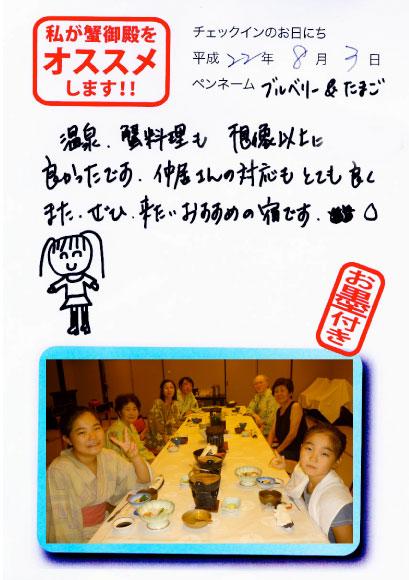 私が蟹御殿を
オススメ
します!!
チェックインのお日にち
平成 22 年 8 月 3 日
ペンネーム ブルベリー&たまご
温泉、蟹料理も 想像以上に
良かったです。仲居さんの対応もとても良く
また、ぜひ、来たいおすすめの宿です。
お墨付き